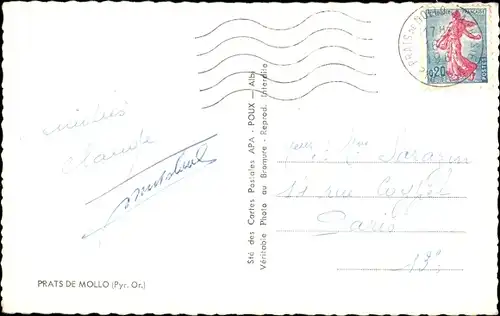 PRATS DE MOLLO
17H
0,20
amitiés
Claude
PRATS DE MOLLO (Pyr. Or.)
Sté des Cartes Postales APA - POUX - Albi
Véritable Photo au Bromure - Reprod. Interdite
et Mme Sarazin
rue Coypel
Paris
13e